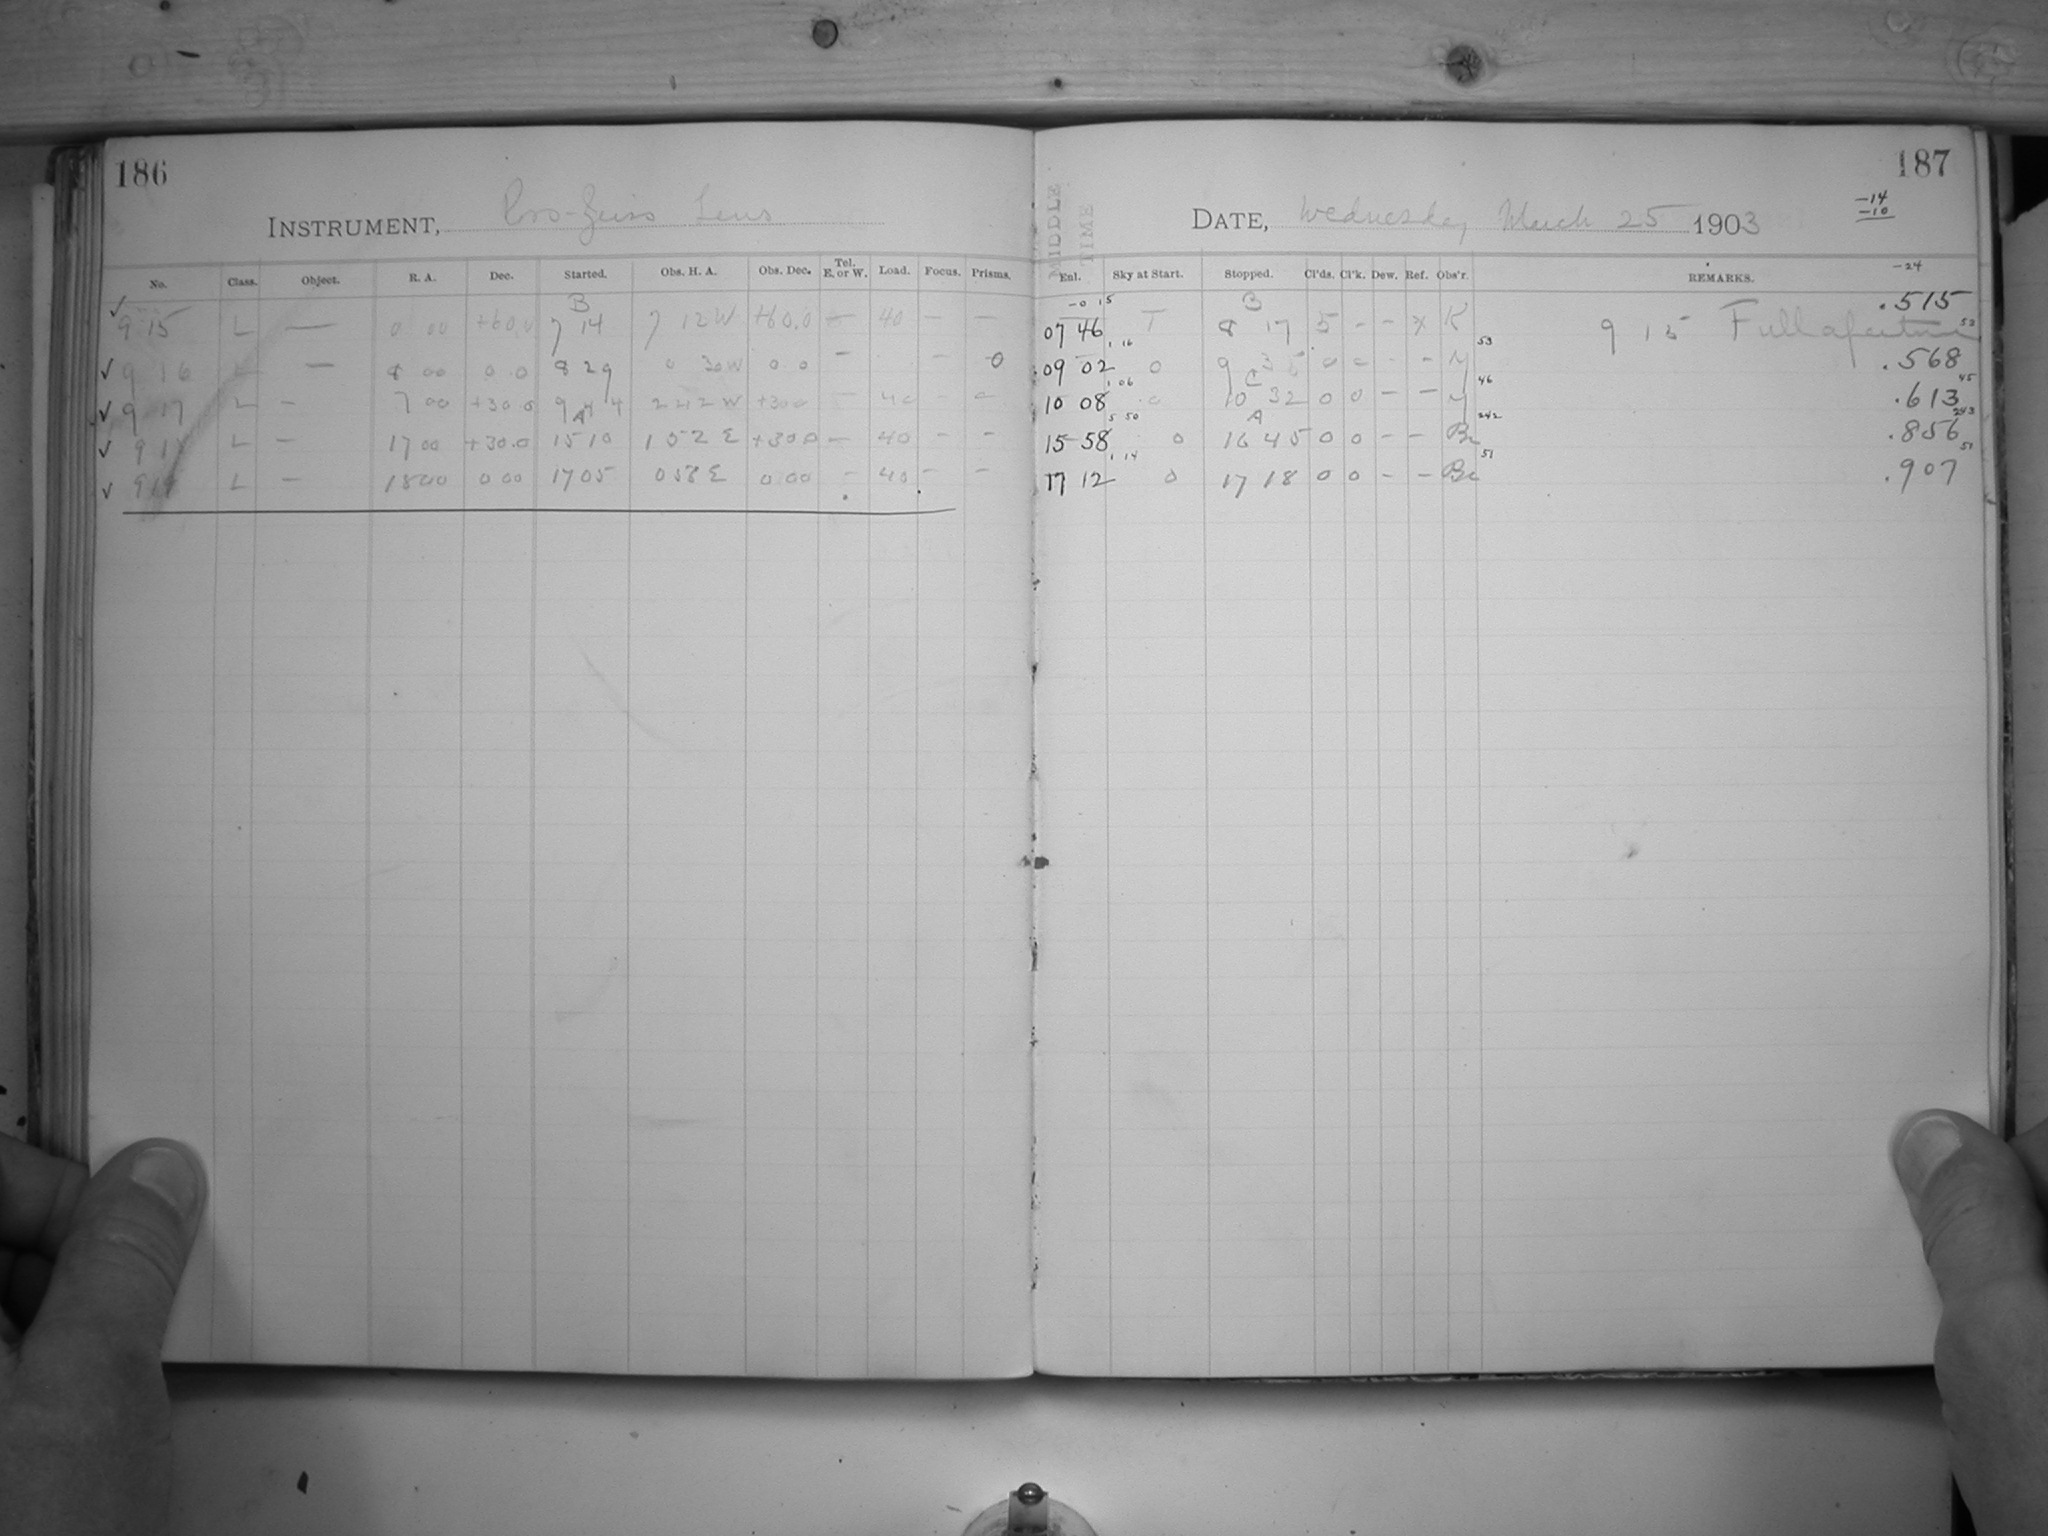 186
INSTRUMENT, Ross-Zeiss Lens
No. Class. Object. R. A. Dec. Started. Obs. H. A. Obs. Dec. Tel. E. or W. Load. Focus. Prisms.
B
✓ 9 15 L — 0 00 +60.0 7 14 7 12 W +60.0 — 40 — —
✓ 9 16 L — 8 00 0.0 8 29 0 30 W 0.0 — — 0
✓ 9 17 L — 7 00 +30.0 9 44 2 42 W +30.0 — 40 —
A
✓ 9 1 L — 17 00 +30.0 15 10 1 52 E +30.0 — 40 — —
✓ 91 L — 18 00 0 00 17 05 0 58 E 0.00 — 40 — —
187
-14
-10
DATE, Wednesday March 25 1903
MIDDLE TIME
-24
Enl. Sky at Start. Stopped. Cl'ds. Cl'k. Dew. Ref. Obs'r. REMARKS.
-0 15 B .515
07 46 T 8 17 5 - - x K 9 15 Full aperture 53
1 16 53
09 02 0 9 35 0 0 - - Y .568
1 06 C 46 45
10 08 0 10 32 0 0 - - Y .613
5 50 A 242 243
15 58 0 16 45 0 0 - - Br .856
1 14 51 51
17 12 0 17 18 0 0 - - Br .907